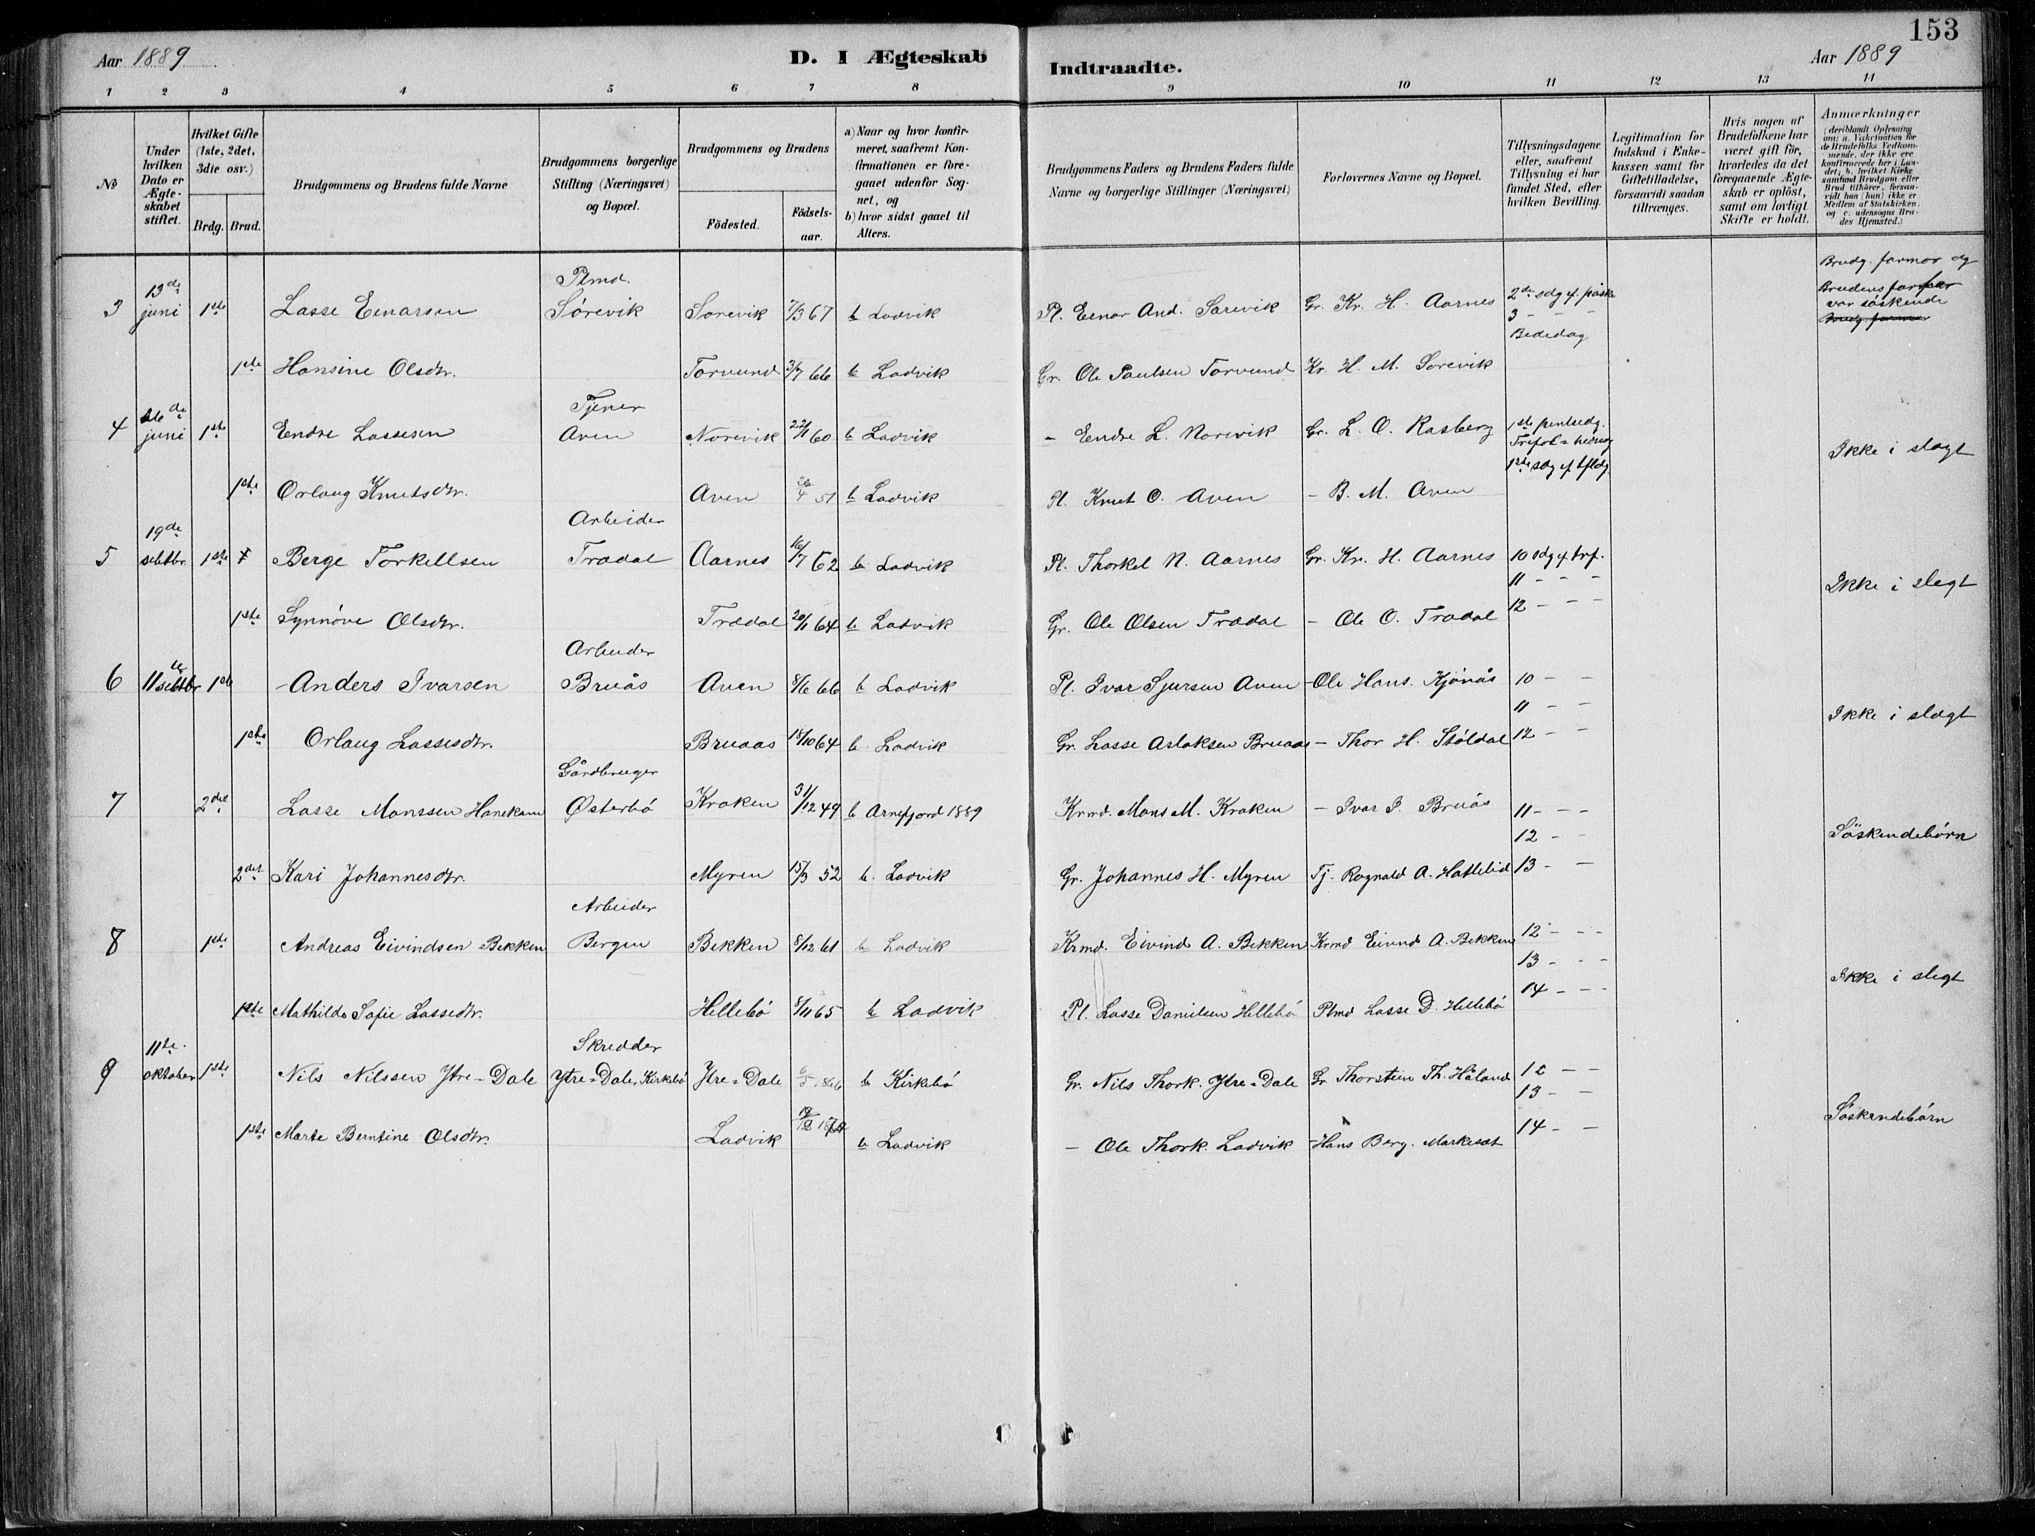 153
Aar 1889
D. I Ægteskab
Indtraadte.
Aar 1889
1 2 3 4 5 6 7 8 9 10 11 12 13 14
No
Under hvilken Dato er Ægteskabet stiftet.
Hvilket Gifte (1ste, 2det, 3die osv.)
Brdg. Brud.
Brudgommens og Brudens fulde Navne
Brudgommens borgerlige Stilling (Næringsvei) og Bopæl.
Brudgommens og Brudens
Födested.
Födselsaar.
a) Naar og hvor konfirmeret, saafremt Konfirmationen er foregaaet udenfor Sognet, og
b) hvor sidst gaaet til Alters.
Brudgommens Faders og Brudens Faders fulde Navne og borgerlige Stillinger (Næringsvei)
Forlovernes Navne og Bopæl.
Tillysningsdagene eller, saafremt Tillysning ei har fundet Sted, efter hvilken Bevilling.
Legitimation for Indskud i Enkekassen samt for Giftetilladelse, forsaavidt saadan tiltrænges.
Hvis nogen af Brudefolkene har været gift før, hvorledes da det foregaaende Ægteskab er opløst, samt om lovligt Skifte er holdt.
Anmærkninger
(deriblandt Oplysning om: a. Vakcination for de Brudefolks Vedkommende, der ikke ere konfirmerede her i Landet; b. hvilket Kirkesamfund Brudgom eller Brud tilhører, forsaavidt han (hun) ikke er Medlem af Statskirken, og c. udensogns Brudes Hjemsted.)
3 13de juni 1ste Lasse Einarsen Plmd. Sørevik Sørevik 7/3 67 b Ladvik Pl. Einar And. Sørevik Gr. Kr. H. Aarnes 2de sdg ef. påske 3 - - - Bededag Brudg. farmor og Brudens farfar var søskende
1ste Hansine Olsdtr. Torvund 3/7 66 b Ladvik Gr. Ole Paulsen Torvund Kr. H. M. Sørevik
4 juni 1ste Endre Lassesen Tjener Aven Norevik 22/11 60 b Ladvik - Endre L. Norevik Gr. L. O. Rasberg 1ste pintsedg. 1ste sdg ef tfldg Ikke i slægt
1ste Orlaug Knutsdtr. Aven 51 b Ladvik Pl. Knut O. Aven - B. M. Aven
5 19de septbr. 1ste Berge Torkellsen Arbeider Trædal Aarnes 16/7 62 b Ladvik Pl. Thorkel N. Aarnes Gr. Kr. H. Aarnes 10 sdg ef trf. 11 - - - Ikke i slegt
1ste Synnøve Olsdtr. Trædal 20/11 64 b Ladvik Gr. Ole Olsen Trædal - Ole O. Trædal 12 - - -
6 11te septbr 1ste Anders Ivarsen Arbeider Bruås Aven 8/6 66 b Ladvik Pl. Ivar Sjursen Aven - Ole Hans. Kjönås 10 - - 11 - - Ikke i slægt
1ste Orlaug Lassesdtr. Bruaas 18/10 64 b. Ladvik Gr. Lasse Aslaksen Bruaas - Thor H. Stöldal 12 - -
7 2det Lasse Monssen Hanekam Gårdbruger Østerbö Kraken 31/12 49 b Arnefjord 1889 Krmd. Mons M. Kraken - Ivar I. Bruås 11 - - - 12 - - Söskendebörn
2det Kari Johannesdtr. Myren 15/3 52 b. Ladvik Gr. Johannes H. Myren Tj. Rognald A. Hattelid 13 - -
8 1ste Andreas Eivindsen Bekken Arbeider Bergen Bekken 8/12 61 b Ladvik Krmd. Eivind A. Bekken Krmd Eivind A. Bekken 12 - - - 13 - - - Ikke i slegt
1ste Mathilde Sofie Lassedtr. Hillebö 8/11 65 b Ladvik Pl. Lasse Danielsen Hillebö Plmd Lasse D. Hillebö 14 - - -
9 11te oktober 1ste Nils Nilssen Ytre-Dale Skredder Ytre-Dale, Kirkebö Ytre-Dale 6/5 1866 b Kirkebö Gr. Nils Thork. Ytre-Dale Gr. Thorstein Th. Håland 12 - - 13 - - Söskendebörn
1ste Marte Berntine Olsdtr. Ladvik b Ladvik - Ole Thork. Ladvik - Hans Berg. Markeset 14 - -